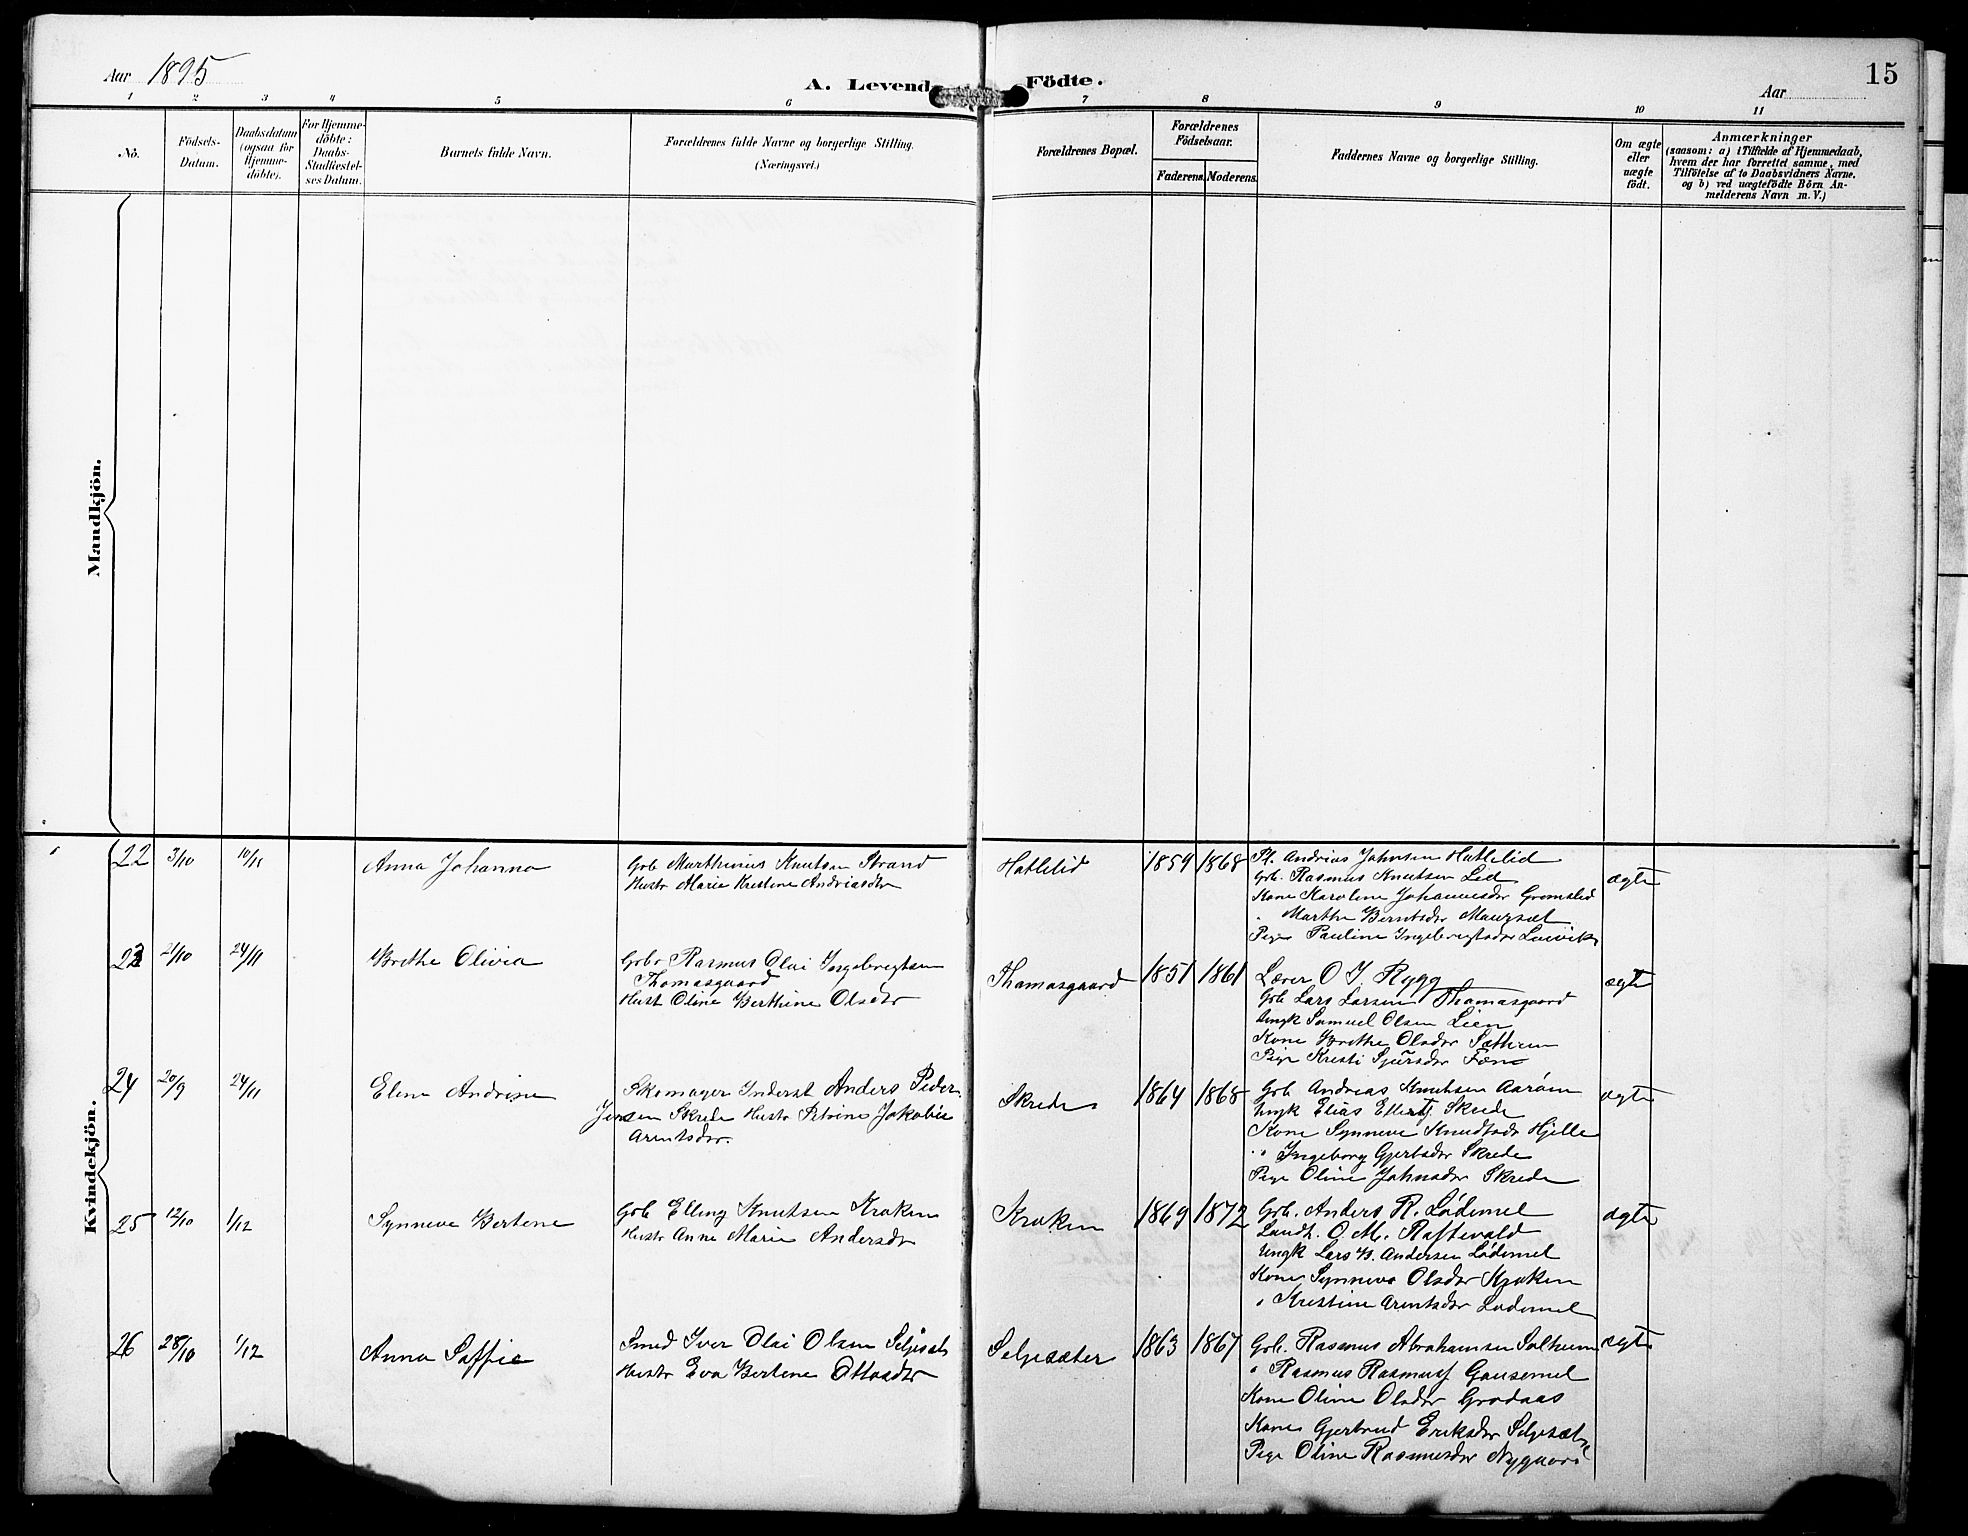 Aar 1895
A. Levende Födte.
Aar
15
1 2 3 4 5 6 7 8 9 10 11
No.
Födsels-
Datum.
Daabsdatum
(ogsaa for
Hjemme-
döbte).
For Hjemme-
döbte:
Daabs-
Stadfæstel-
ses Datum.
Barnets fulde Navn.
Forældrenes fulde Navne og borgerlige Stilling.
(Næringsvei.)
Forældrenes Bopæl.
Forældrenes
Födselsaar.
Faderens. Moderens.
Faddernes Navne og borgerlige Stilling.
Om ægte
eller
uægte
födt.
Anmærkninger
(saasom: a) i Tilfælde af Hjemmedaab,
hvem der har forrettet samme, med
Tilföielse af to Daabsvidners Navne.
og b) ved uægtefödte Börn An-
melderens Navn m. V.)
Mandkjön.
Kvindekjön.
22 3/10 10/11 Anna Johanna
Gbr Marthinus Knutsen Strand
Hustr Marie Kristine Andriasdtr
Hatlelid 1859 1868
Pl. Andrias Johnsen Hatlelid
Gbr. Rasmus Knutsen Lid
Kone Karoline Johannesdtr Gromslid
" Marthe Berntsdtr Maurset
Pige Pauline Ingebrigtsdtr Leivik
ægte
23 21/10 24/11 Brethe Olivia
Gbr Rasmus Olai Ingebrigtsen
Thomasgaard
Hust Oline Berthine Olsdtr
Thomasgaard 1851 1861
Lærer O J Rygg
Gbr Lars Larsen Thomasgaard
Ungk Samuel Olsen Lien
Kone Brethe Olsdtr Sætren
Pige Kristi Sjursdtr Fæn
ægte
24 20/9 24/11 Elene Andrine
Skomager Inderst Anders Peder
Jensen Skrede Hustr Petrine Jakobie
Arentsdtr.
Skrede 1864 1868
Gbr Andreas Knutsen Aarøen
Ungk Elias Ellertz Skrede
Kone Synneve Knudtsdtr Hjelle
" Ingeborg Gjertsdtr Skrede
Pige Oline Johnsdtr Skrede
ægte
25 12/10 1/12 Synneve Bertene
Gbr Elling Knutsen Kroken
Hustr Anne Marie Andersdtr
Kroken 1869 1872
Gbr. Anders R. Lødemel
Landh. O. M. Raftevald
Ungk Lars B. Andersen Lødemel
Kone Synneve Olsdtr Kroken
" Kristine Arentsdtr Lødemel
ægte
26 28/10 1/12 Anna Soffie
Smed Iver Olai Olsen Seljesæt
Hustr Eva Bertene Ottosdtr
Seljesæter 1863 1867
Gbr. Rasmus Abrahamsen Solheim
" Rasmus Rasmusf Gausemel
Kone Oline Olsdtr Grodaas
Kone Gjertrud Eriksdtr Seljesæt
Pige Oline Rasmusdtr Nygaard
ægte